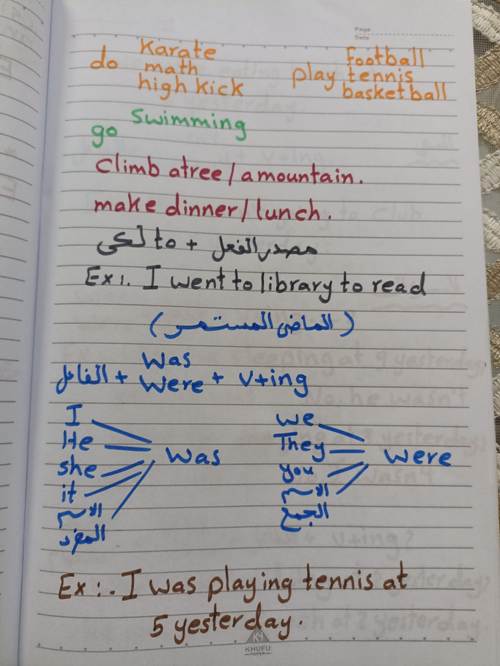 Page
Date
do Karate math high kick play football tennis basketball
go swimming
climb a tree / a mountain.
make dinner / lunch.
مصدر الفعل + to لكى
Ex:. I went to library to read
(الماضى المستمر)
الفاعل + was were + v+ing
I He she it الاسم المفرد was
we They you الاسم الجمع were
Ex:. I was playing tennis at
5 yesterday.
KHUFU